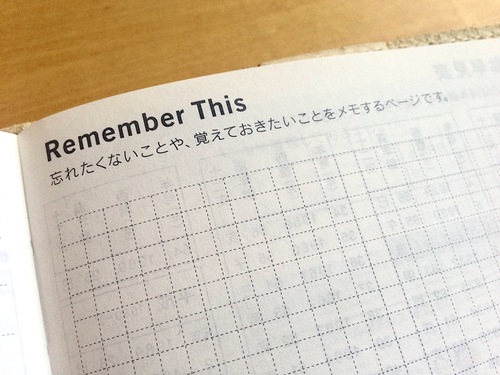 Remember This
忘れたくないことや、覚えておきたいことをメモするページです。